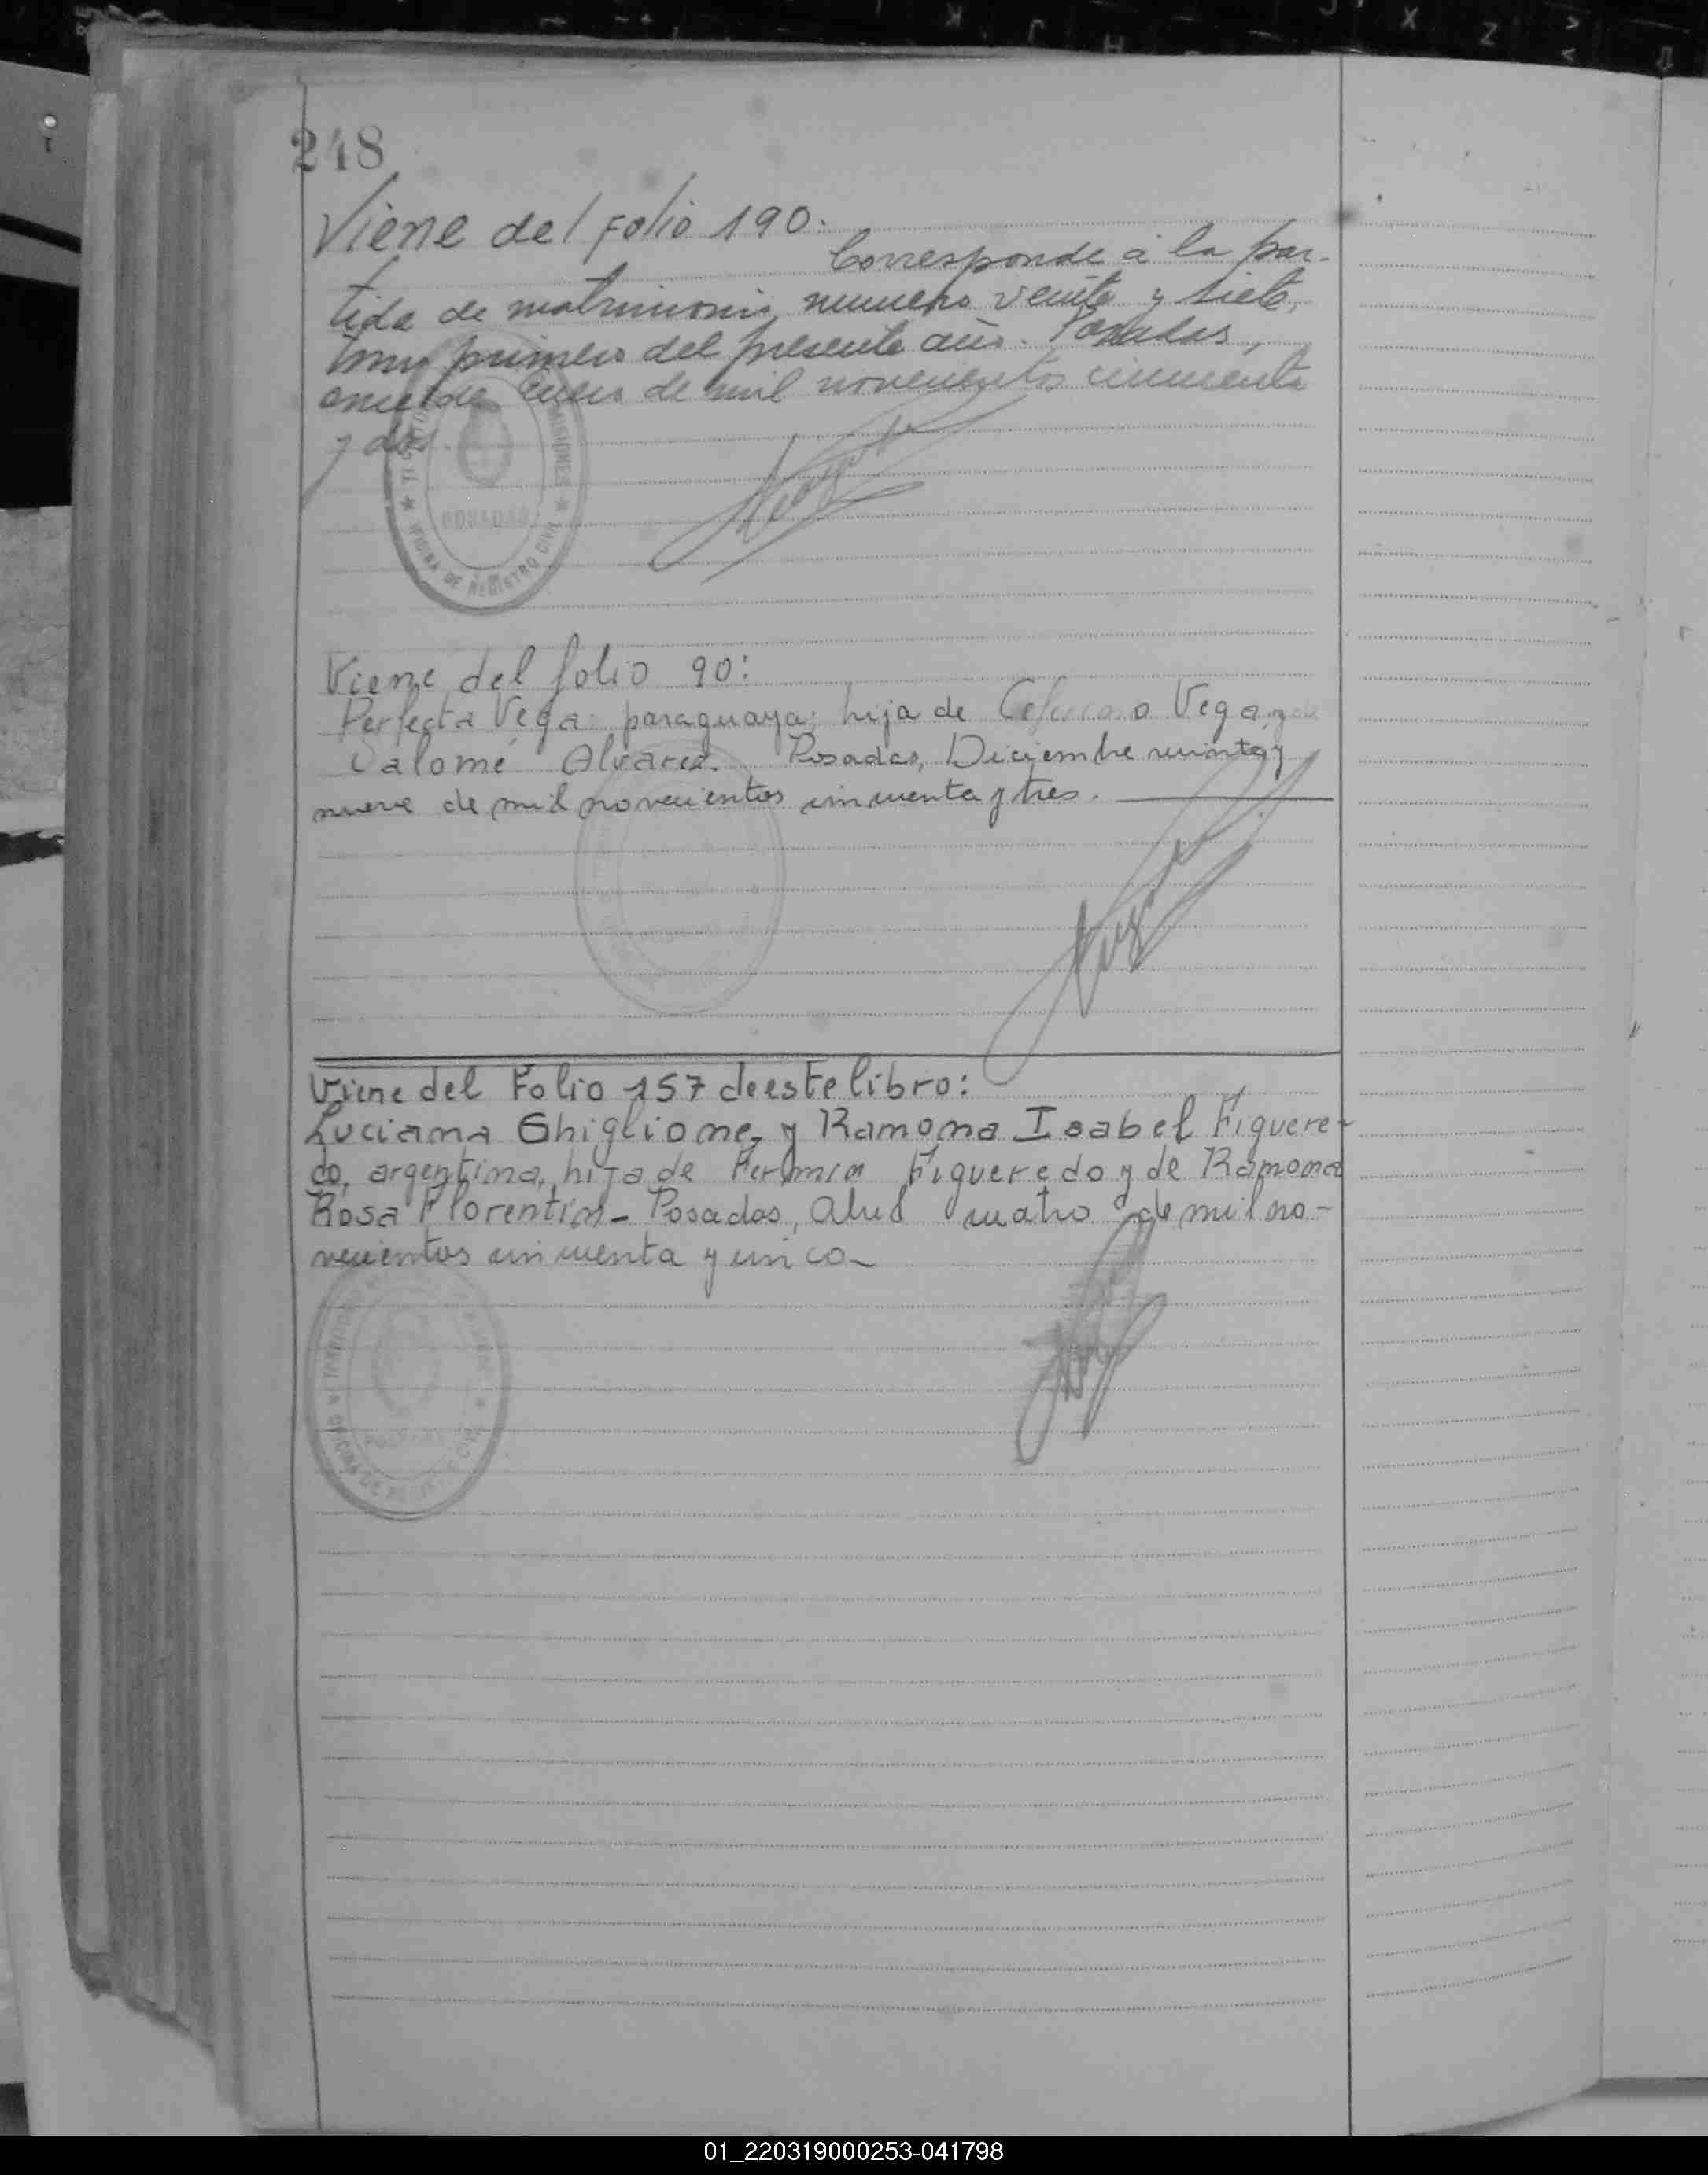 248
Viene del Folio 190:
Corresponde a la par-
tida de matrimonio numero veinte y siete,
tomo primero del presente año. Posadas,
once de enero de mil novecientos cincuenta
y dos.
MISIONES
POSADAS
OFICINA DE REGISTRO CIVIL
Viene del folio 90:
Perfecta Vega: paraguaya: hija de Vega, y de
Salomé Alvarez. Posadas, Diciembre veinte y
nueve de mil novecientos cincuenta y tres.
Viene del Folio 157 de este libro:
Luciana Ghiglione, y Ramona Isabel Figuere-
do, argentina, hija de Fermin Figueredo y de Ramona
Rosa Florentin - Posadas, Abril cuatro de mil no-
vecientos cincuenta y cinco-
01_220319000253-041798